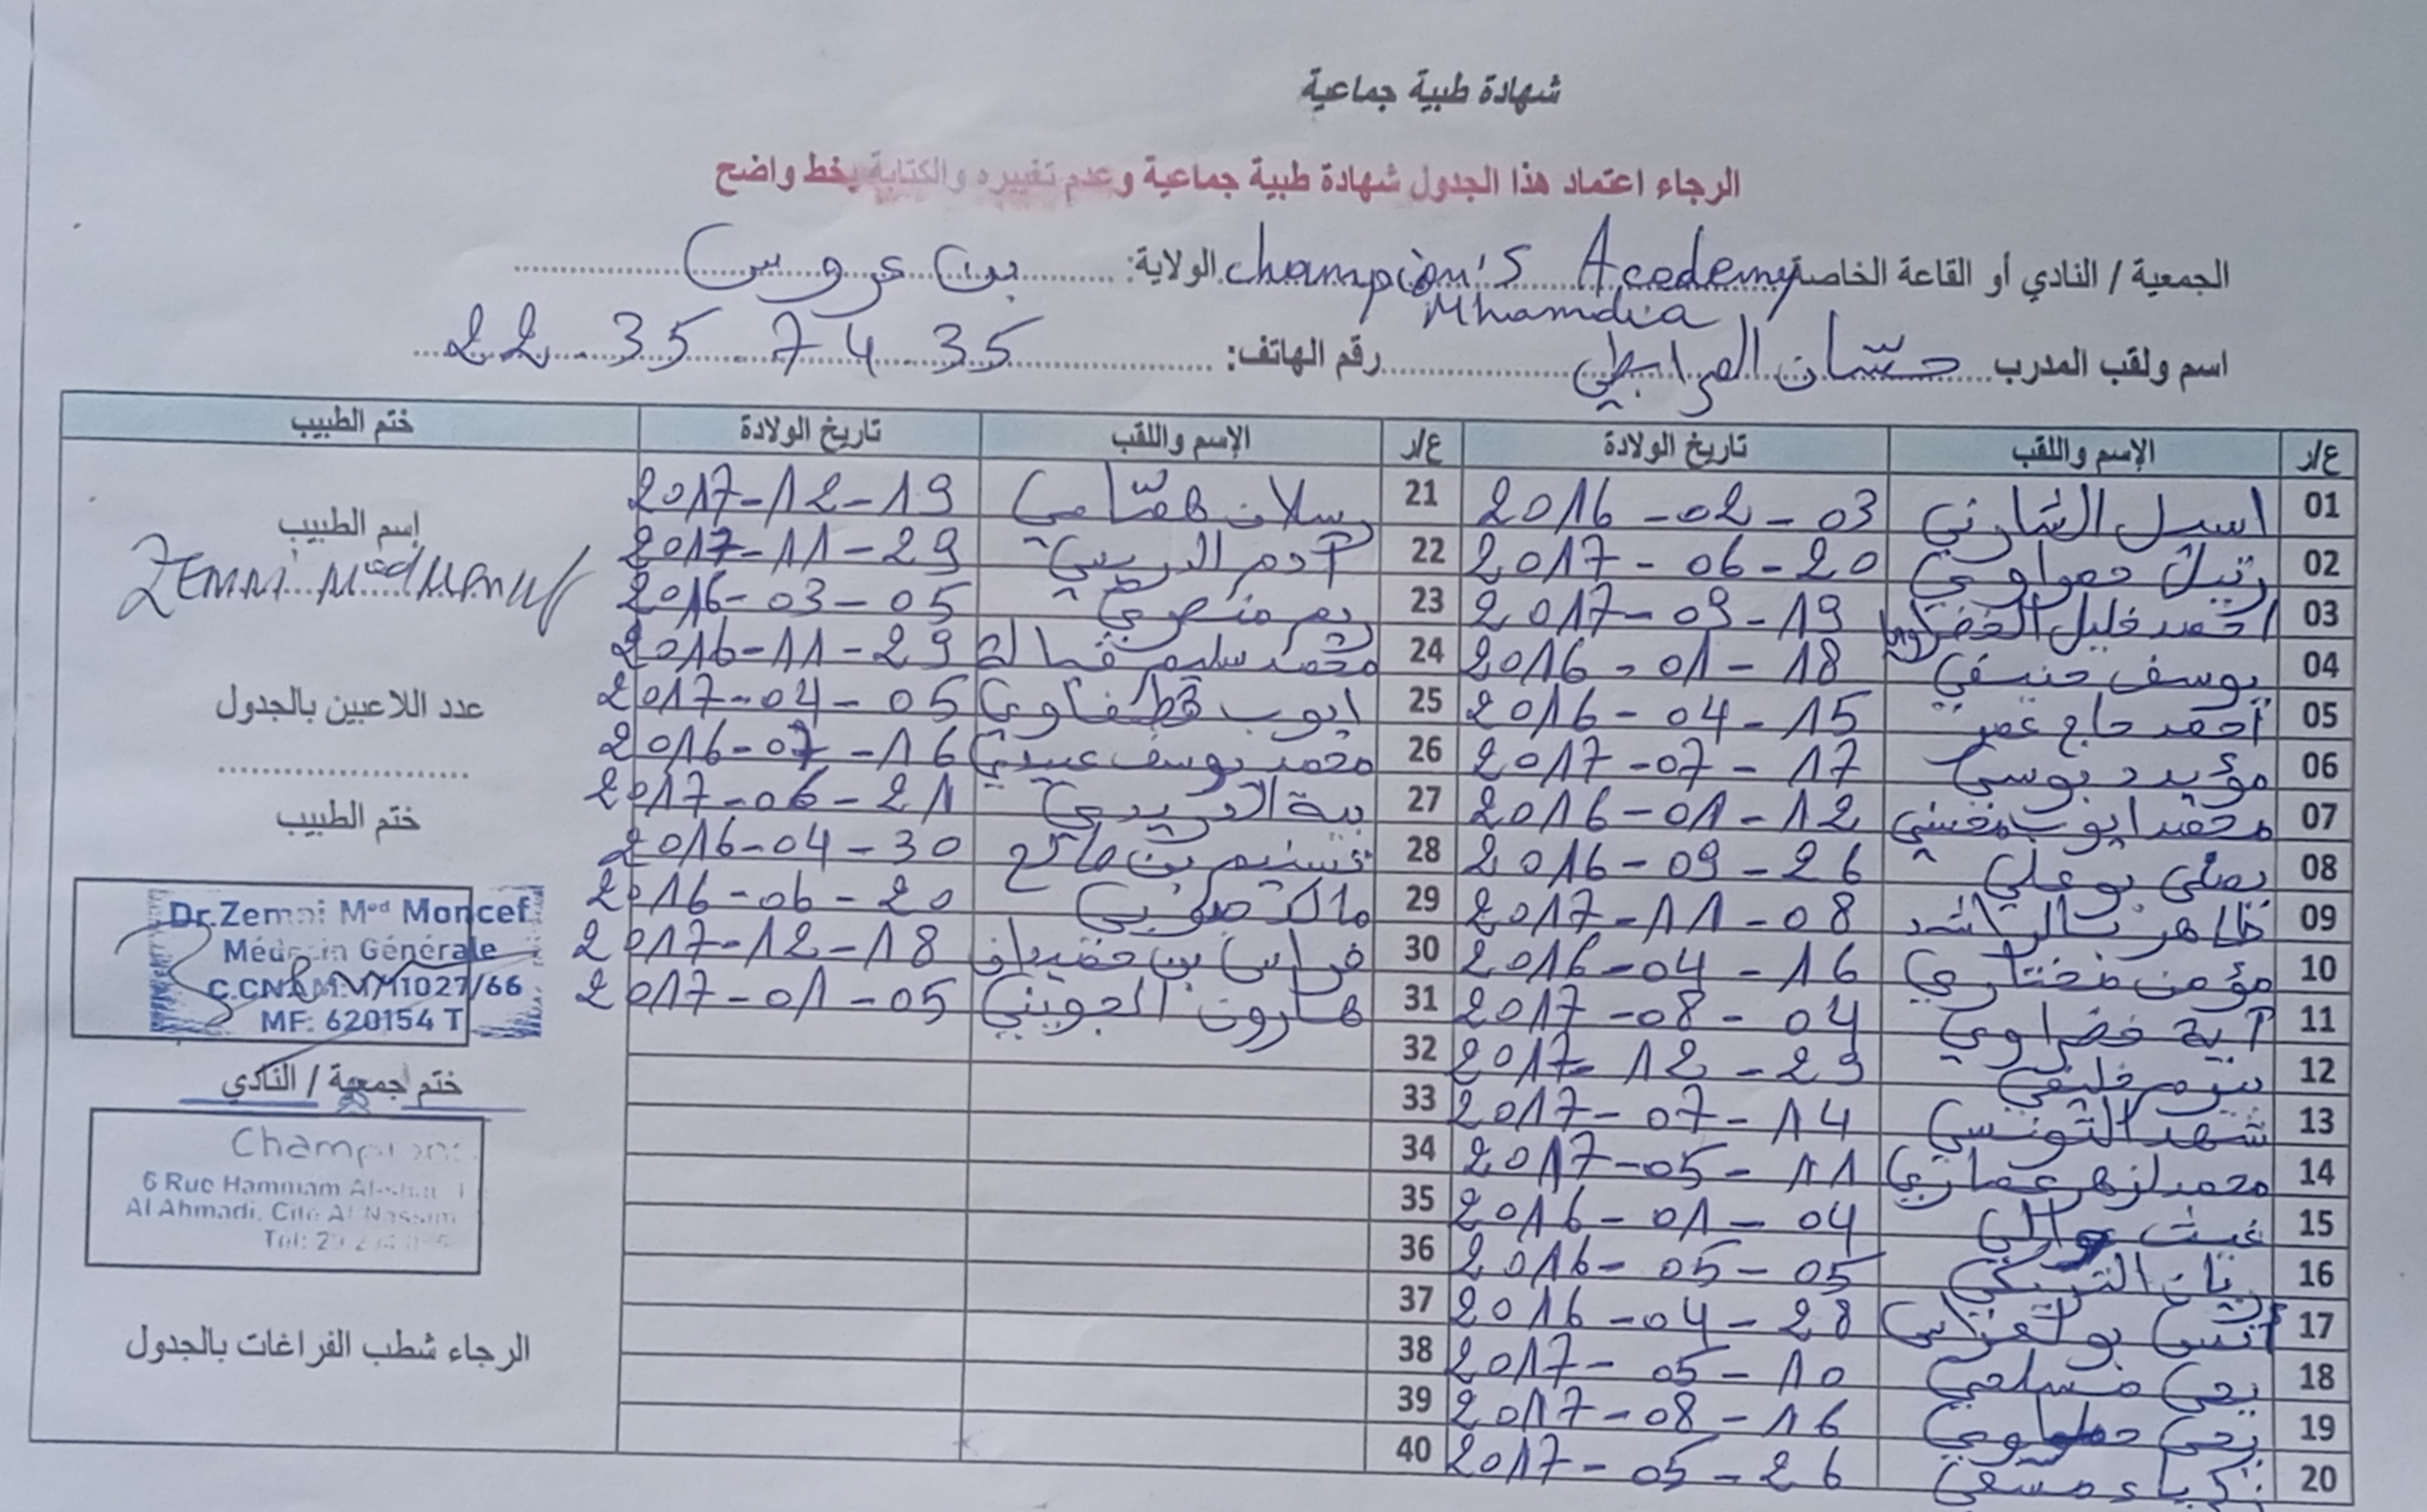 شهادة طبية جماعية
الرجاء اعتماد هذا الجدول شهادة طبية جماعية وعدم تغييره والكتابة بخط واضح
الجمعية / النادي أو القاعة الخاصة Champion's Academy Mhamdia الولاية: بن عروس
اسم ولقب المدرب حسّان المرابطي رقم الهاتف: 22 35 74 35
ع/ر الإسم واللقب تاريخ الولادة ع/ر الإسم واللقب تاريخ الولادة ختم الطبيب
01 اسيل الشارني 2016-02-03 21 رسلان همّامي 2017-12-19
02 2017-06-20 22 آدم 2017-11-29
03 احمد خليل 2017-09-19 23 ريم منصري 2016-03-05
04 يوسف حنيفي 2016-01-18 24 محمد سليم 2016-11-29
05 احمد حاج عمر 2016-04-15 25 ايوب قطفاوي 2017-04-05
06 مؤيد بوسي 2017-07-17 26 محمد يوسف عبيدي 2016-07-16
07 محمد ايوب 2016-01-12 27 بية الدريدي 2017-06-21
08 بوعلي 2016-09-26 28 تسنيم بن صالح 2016-04-30
09 2017-11-08 29 مالك 2016-06-20
10 مؤمن مختاري 2016-04-16 30 فراس بن حميدان 2017-12-18
11 آية خضراوي 2017-08-04 31 هارون الجويني 2017-01-05
12 خليفي 2017-12-29 32
13 شهد التونسي 2017-07-14 33
14 محمد عماري 2017-05-11 34
15 غيث 2016-01-04 35
16 التريكي 2016-05-05 36
17 أنس 2016-04-28 37
18 يحي مسلمي 2017-05-10 38
19 يحي 2017-08-16 39
20 زكرياء 2017-05-26 40
إسم الطبيب
Zemni Med Moncef
عدد اللاعبين بالجدول
ختم الطبيب
Dr.Zemni Med Moncef
Médecin Générale
C.CNAM:1/11027/66
MF: 620154 T
ختم جمعية / النادي
Champions
6 Rue Hammam
Al Ahmadi, Cité Al Nassim
Tél: 29
الرجاء شطب الفراغات بالجدول